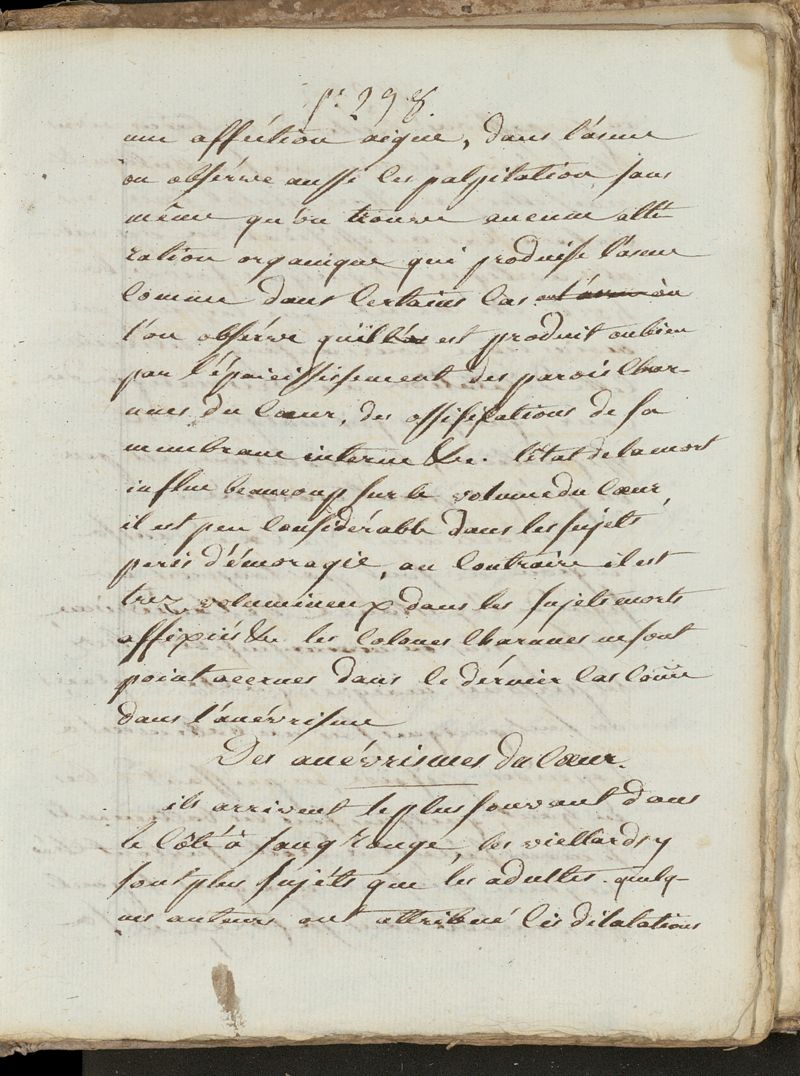 p. 298.
une afféction aigue, dans l'asme
on obsérve aussi les palpitation, sans
même qu'on trouve aucune alté
ration organique qui produise l'asme
Comme dans Certains Cas où
l'on obsérve qu'il est produit ou bien
par l'épaicissisement des parois Char-
nues du Cœur, des ossifications de sa
membrane interne &c. l'état de la mort
influe beaucoup sur le volume du Cœur,
il est peu Considérable dans les sujéts
peris d'émoragie, au Contraire il est
trez volumineux dans les sujets morts
assfixiés &c les Colones Charnues ne sont
point accrues dans le dérnier Cas Come
dans l'anévrisme
Des anévrismes du Cœur.
ils arrivent le plus souvant dans
le Côté à sang Rouge, les viellards y
sont plus sujéts que les adultes. quelq-
ues auteurs ont attribué Ces dilatations